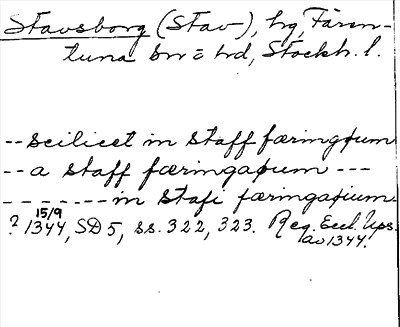 Stavsborg (Stav), hg, Fären-
tuna sn o hd, Stockh. l.
-- scilicet in staff færingþum
-- a staff færingaþum ---
-------- in stafi færingaþium
15/9
? 1344, SD 5, ss. 322, 323. Reg. Eccl. Ups.
av 1344.